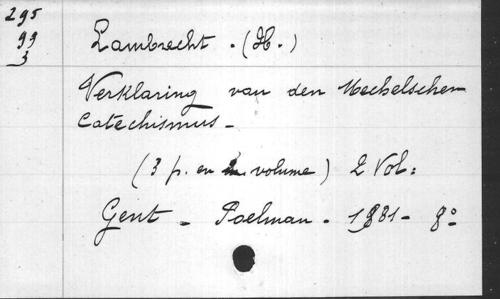 295
99
3
Lambrecht . (H.)
Verklaring van den Mechelschen
Catechismus -
(3 p. en 2 volume) 2 Vol:
Gent - Poelman - 1881 - 8°